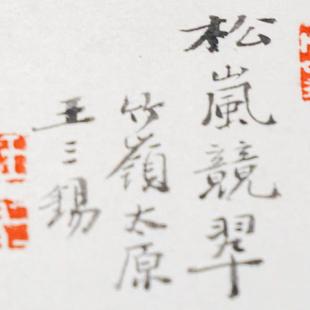 松嵐競翠
竹嶺太原
王三錫